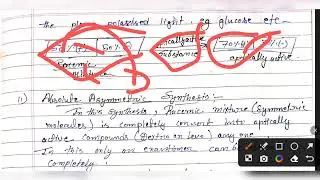 the plane polarised light. eg glucose etc.
50% (+) 50% (-) optically active 70% (+) (-)
Racemic substance optically active
mixture
1) Absolute Asymmetric Synthesis :-
In this synthesis, Racemic mixture (symmetric
molecules) is completely convert into optically
active compounds (Dextro or levo) any one.
In this only one enantiomer can be
completely